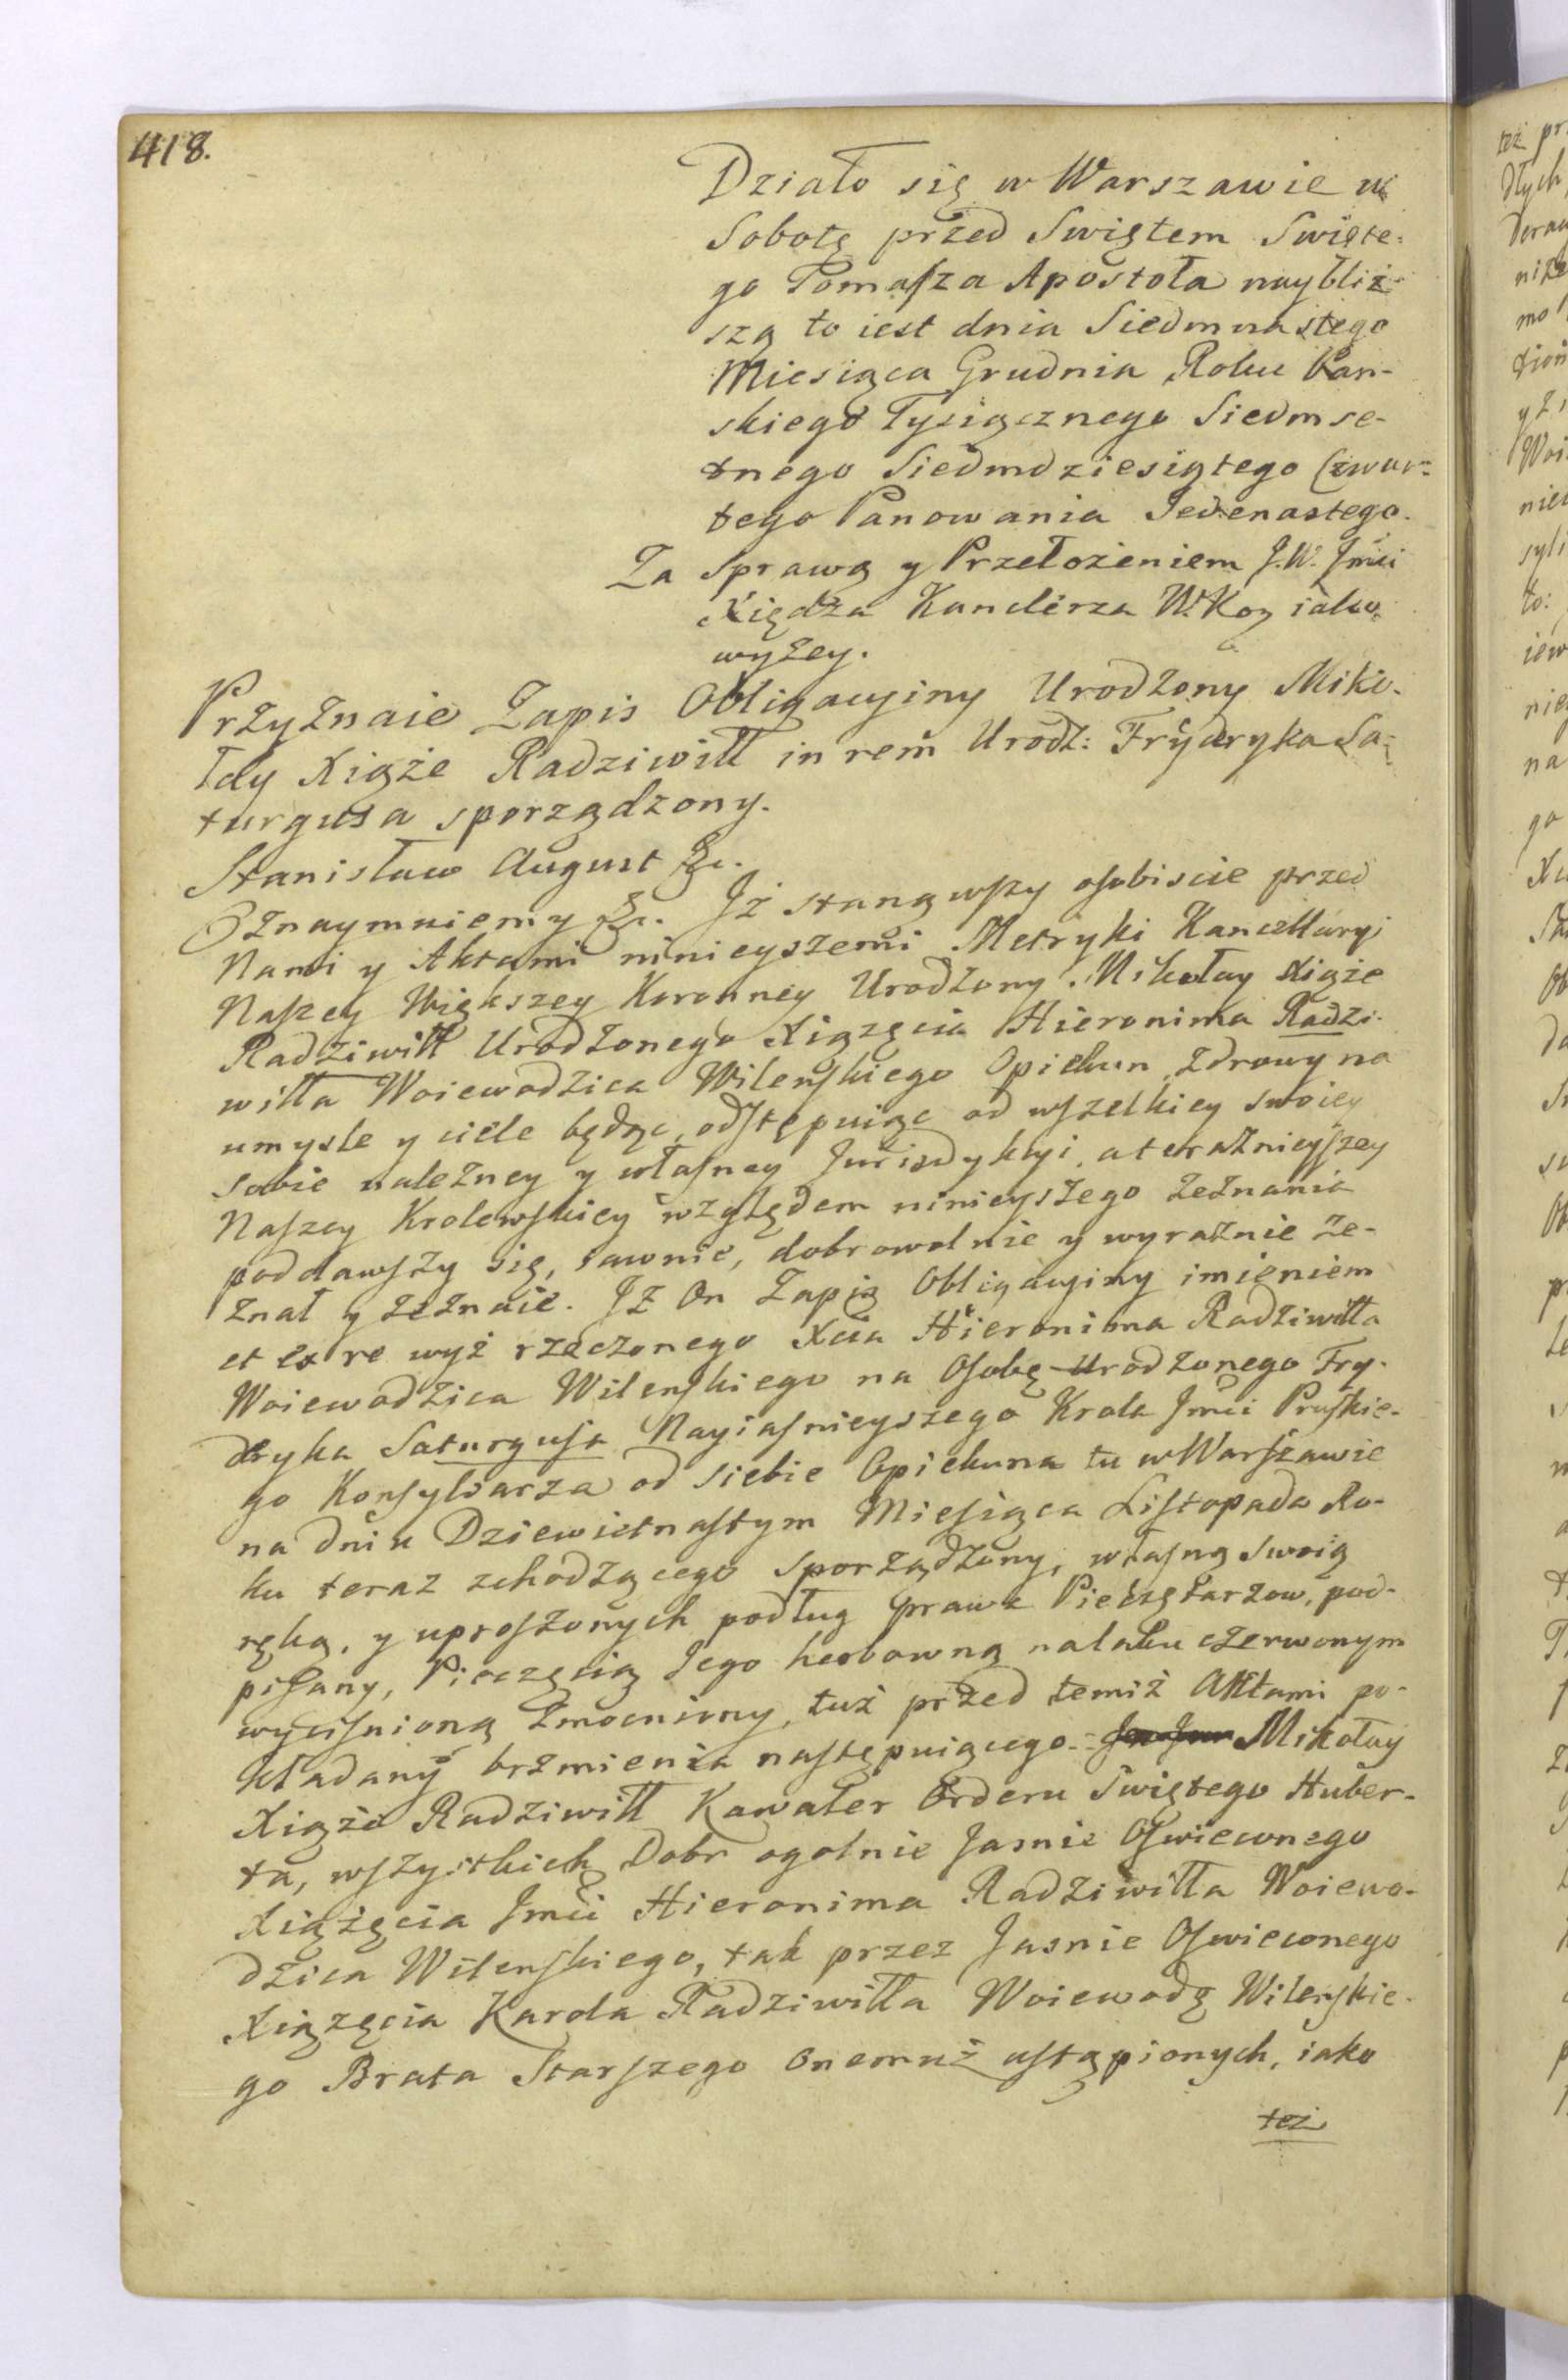 418.
Działo się w Warszawie w
Sobotę przed Swiętem Swięte-
go Tomaſza Apostoła naybliż-
szą to iest dnia Siedmnastego
Miesiąca Grudnia Roku Pan-
skiego Tysiącznego Siedmse-
tnego Siedmdziesiątego Czwar-
tego Panowania Jedenastego.
Za Sprawą y Przełożeniem J.W. Jmći
Xiędza Kanclerza W.Kog iako
wyżey.
Przyznaie Zapis Obligacyiny Urodzony Miko-
łay Xiąże Radziwiłł in rem Urodz: Frydryka Sa-
turgusa sporządzony.
Stanisław August &c.
Oznaymuiemy &c. Iż stanąwſzy oſobiscie przed
Nami y Aktami ninieyszemi Metryki Kancellaryi
Naſzey Większey Koronney Urodzony Mikołay Xiąże
Radziwiłł Urodzonego Xiążęcia Hieronima Radzi-
wiłła Woiewodzica Wilenſkiego Opiekun, zdrowy na
umysle y ciele będąc, odſtępuiąc od wſzelkiey swoiey
sobie należney y właſney Jurisdykcyi, a teraźnieyſzey
Naſzey Krolewſkiey względem ninieyszego zeznania
poddawſzy się, iawnie, dobrowolnie y wyraźnie ze-
znał y zeznaie. Iż On Zapis Obligacyiny imieniem
et ex re wyż rzeczonego Xcia Hieronima Radziwiłła
Woiewodzica Wilenſkiego na Oſobę Urodzonego Fry-
dryka Saturguſa Nayiaſnieyszego Krola Jmći Pruſkie-
go Konſyliarza od siebie Opiekuna tu w Warſzawie
na dniu Dziewiętnaſtym Mieſiąca Liſtopada Ro-
ku teraz zchodzącego sporządzony, właſną swoią
ręką, y uproſzonych podług prawa Pieczętarzow, pod-
piſany, Pieczęcią Jego herbowną na laku czerwonym
wyciſnioną zmocniony, tuż przed temiż Aktami po-
kładany brzmienia naſtępuiącego. Mikołay
Xiąże Radziwiłł Kawaler Orderu Swiętego Huber-
ta, wſzyſtkich Dobr ogolnie Jasnie Oſwieconego
Xiążęcia Jmći Hieronima Radziwiłła Woiewo-
dzica Wilenſkiego, tak przez Jasnie Oſwieconego
Xiążęcia Karola Radziwiłła Woiewodę Wilenſkie-
go Brata Starſzego onemuż uſtąpionych, iako
też